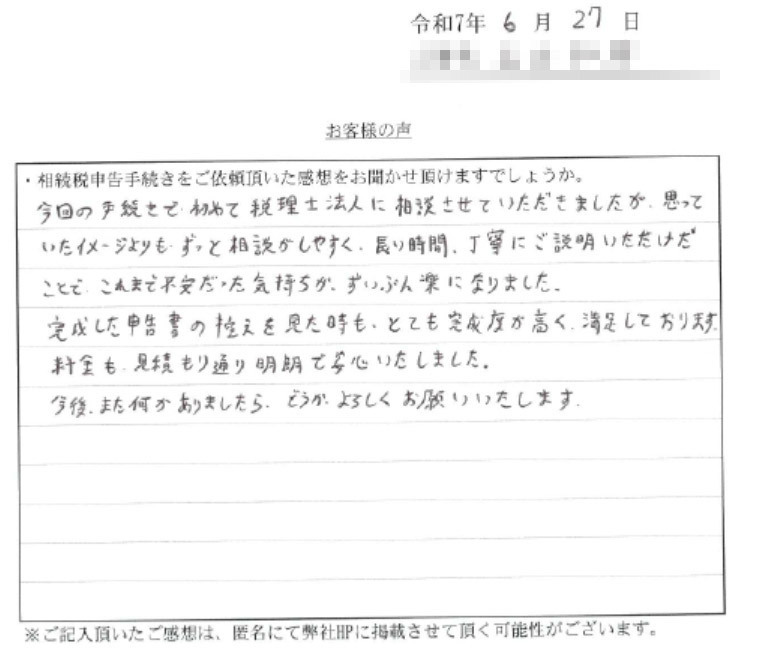 令和7年 6 月 27 日
お客様の声
・相続税申告手続きをご依頼頂いた感想をお聞かせ頂けますでしょうか。
今回の手続きで、初めて税理士法人に相談させていただきましたが、思って
いたイメージよりも、ずっと相談がしやすく、長い時間、丁寧にご説明いただけた
ことで、これまで不安だった気持ちが、ずいぶん楽になりました。
完成した申告書の控えを見た時も、とても完成度が高く、満足しております。
料金も、見積もり通り明朗で安心いたしました。
今後、また何かありましたら、どうか、よろしくお願いいたします。
※ご記入頂いたご感想は、匿名にて弊社HPに掲載させて頂く可能性がございます。